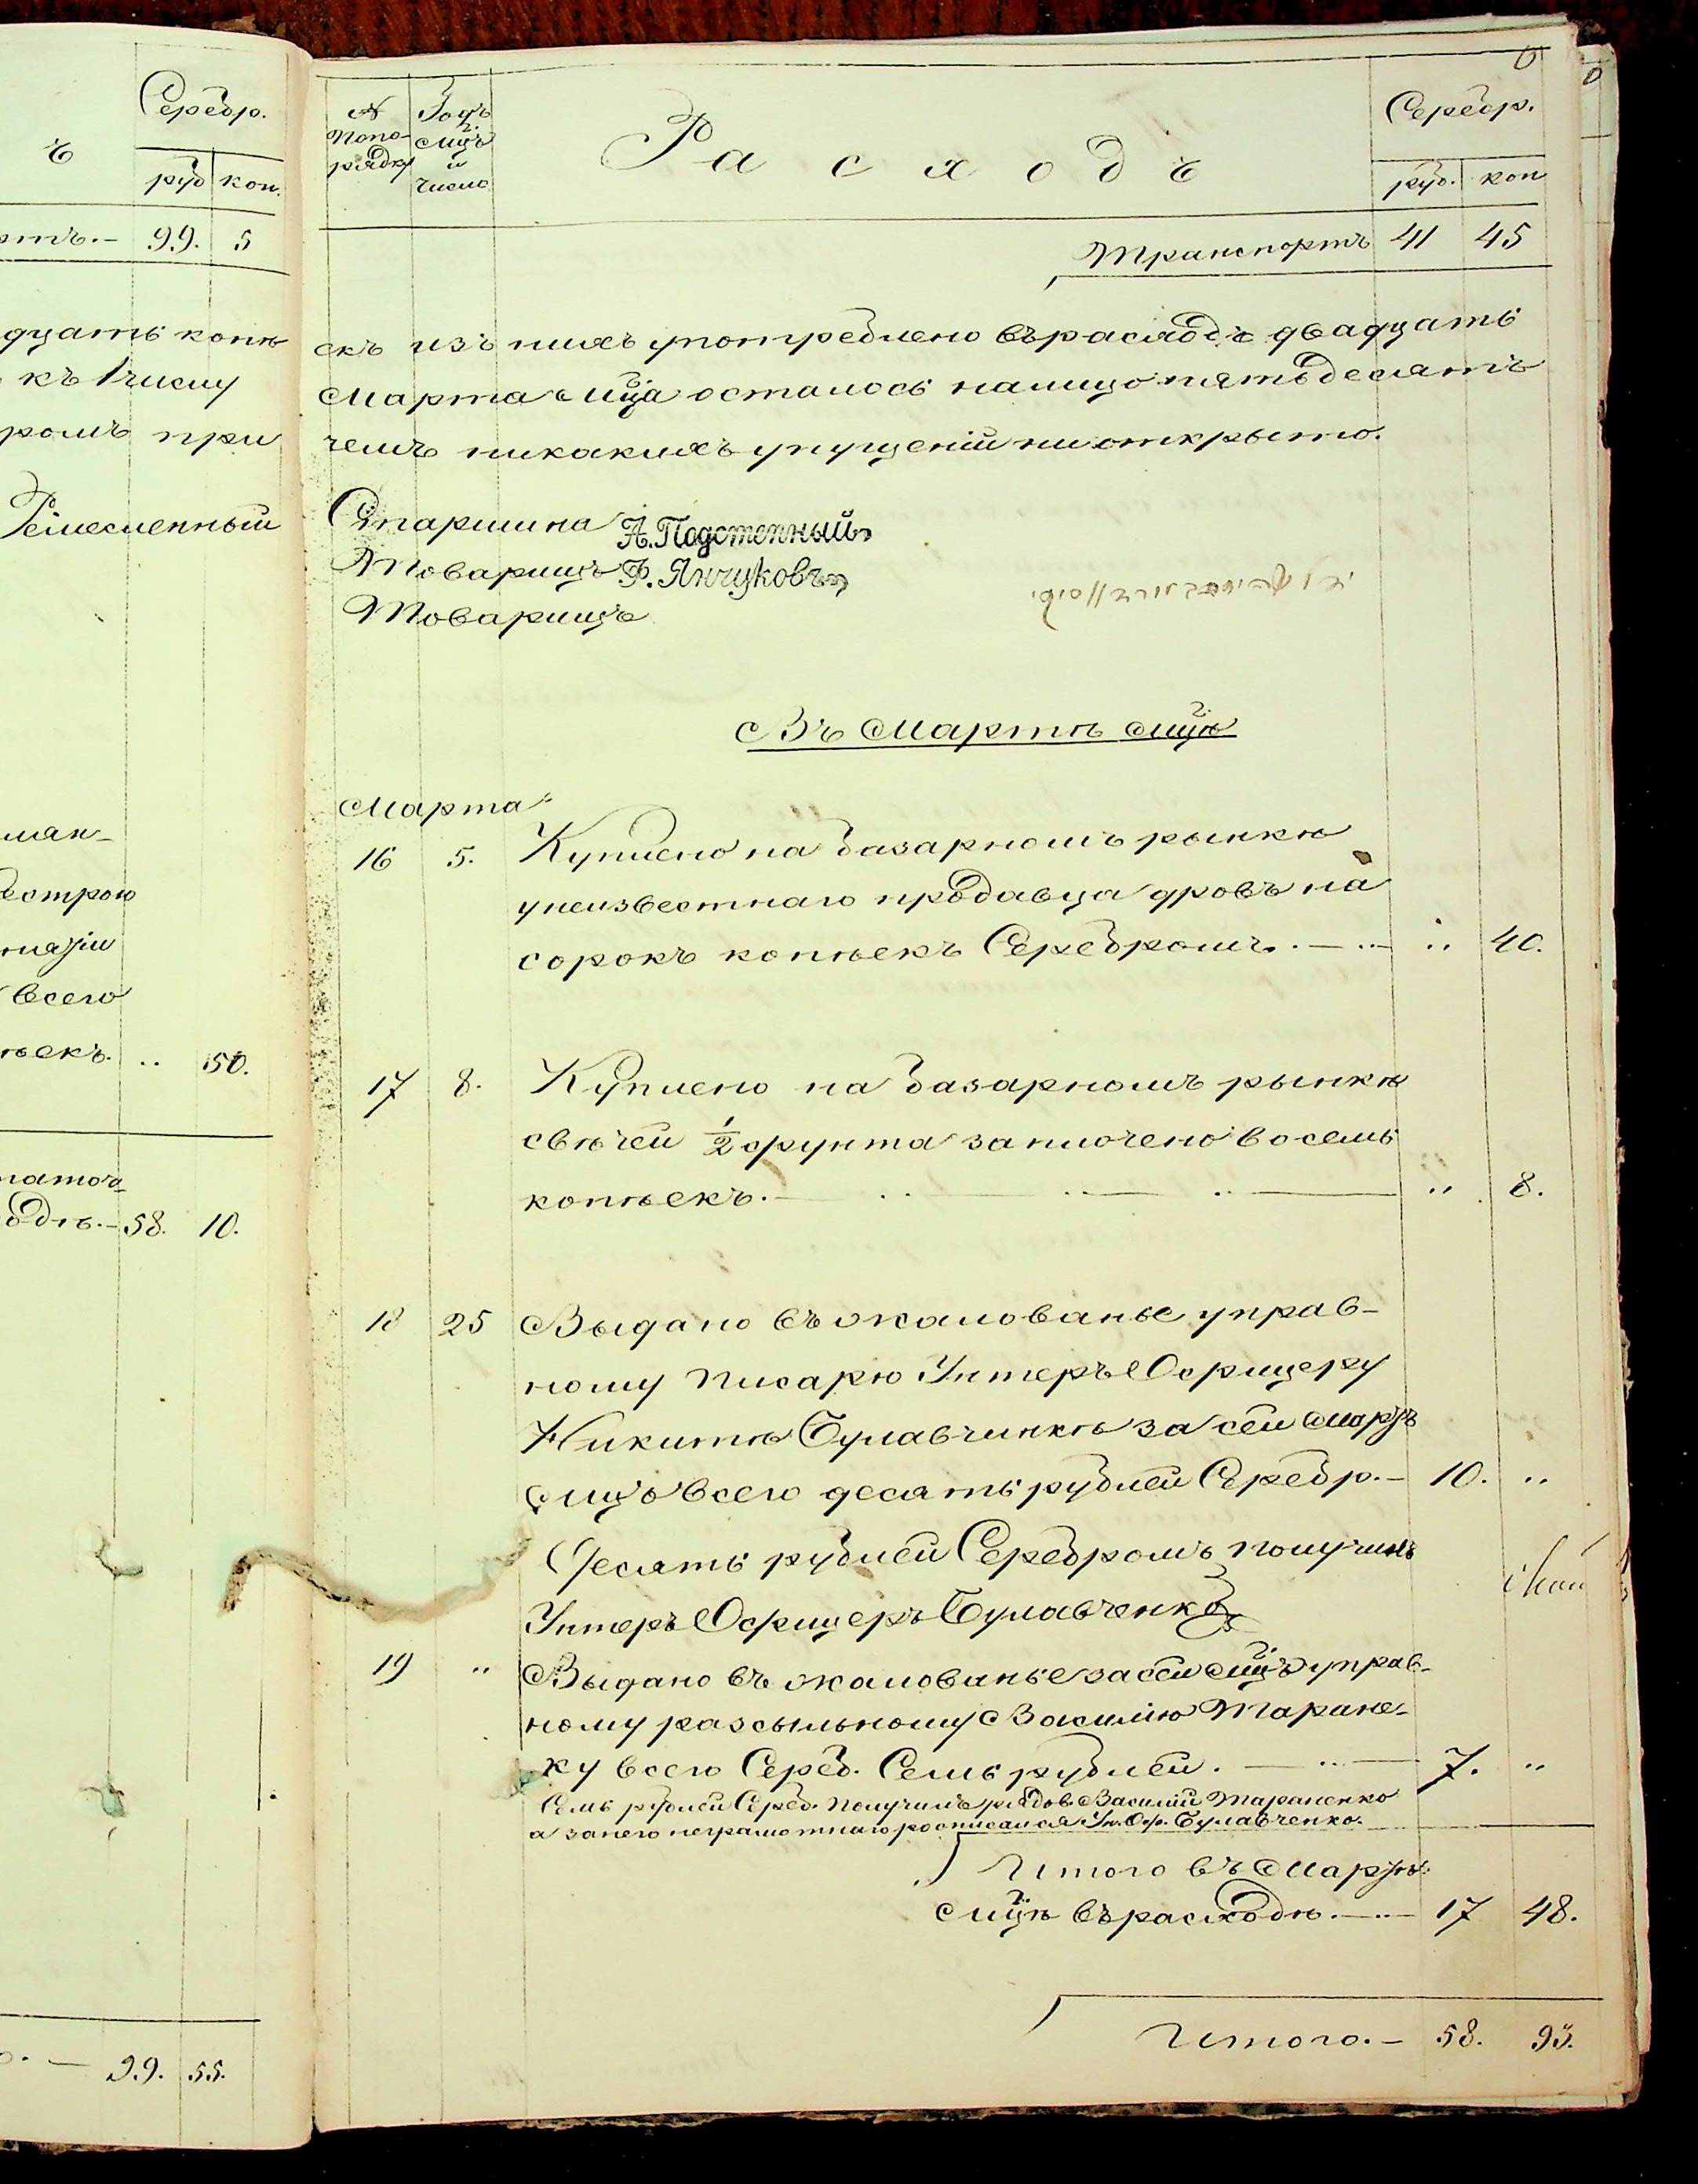 Серебр.
ъ
руб коп.
ртъ.— 99. 5
дцать копѣ
къ 1 числу
ромъ при
Ремесленный
всего
ѣекъ. .. 50.
одѣ.— 58. 10.
— 99. 55.
№ попо-рядку
Годъ мцъ и число
Расходъ
Серебр.
руб. коп
Транспортъ 41 45
екъ изъ нихъ употреблено въ расходъ двадцать
Марта мца осталось налицо пятьдесятъ
чемъ никакихъ упущеній ни открыто.
Старшина А. Подстенный
Товарищъ Ф. Янчуковъ
Товарищъ
Въ Мартѣ мцѣ
Марта
16 5. Куплено на базарномъ рынкѣ
у неизвестнаго продавца дровъ на
сорокъ копѣекъ Серебромъ. — .. 40.
17 8. Куплено на базарномъ рынкѣ
свѣчей ½ фунта заплочено восемь
копѣекъ. — .. 8.
18 25 Выдано въ жалованье управ-
ному писарю Унтеръ Офицеру
Никитѣ Булавчинкѣ за сей Мартъ
мцъ всего десять рублей Серебр.— 10. ..
Десять рублей Серебромъ получилъ
Унтеръ Офицеръ Булавченко
19 .. Выдано въ жалованье за сей мцъ управ-
ному разсыльному Василію Таране-
ку всего Сереб. Семь рублей. — 7. ..
Семь рублей Сереб. получилъ рядов. Василий Тараненко
а за него неграмотнаго росписался Ун. Оф. Булавченко.
Итого въ Мартѣ
мцѣ въ расходѣ. — 17 48.
Итого.— 58. 93.